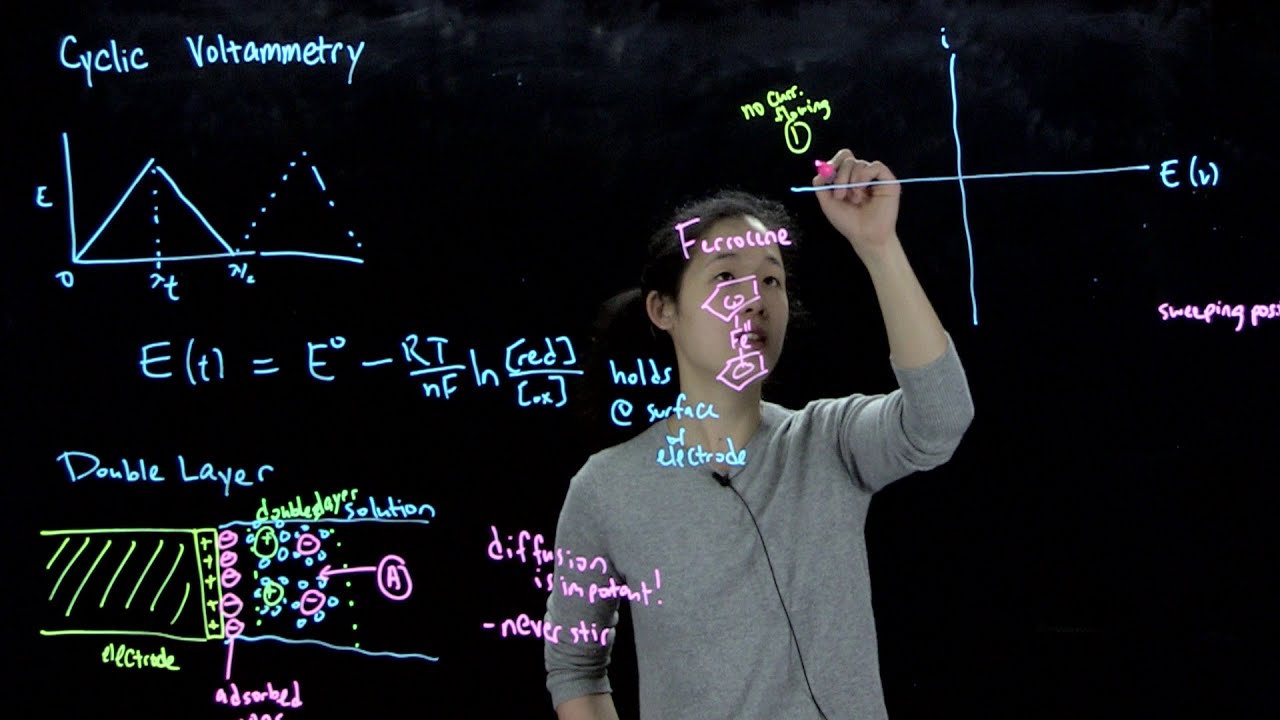 Cyclic Voltammetry
E
0
λ
t
E(t) = E⁰ - RT/nF ln [red]/[ox]
holds
@ surface
of
electrode
Double Layer
double layer
solution
+
+
+
+
+
-
-
-
-
-
+
-
+
-
A
electrode
adsorbed
diffusion
is important!
- never stir
Ferrocene
Fe"
no curr.
flowing
1
i
E (v)
sweeping